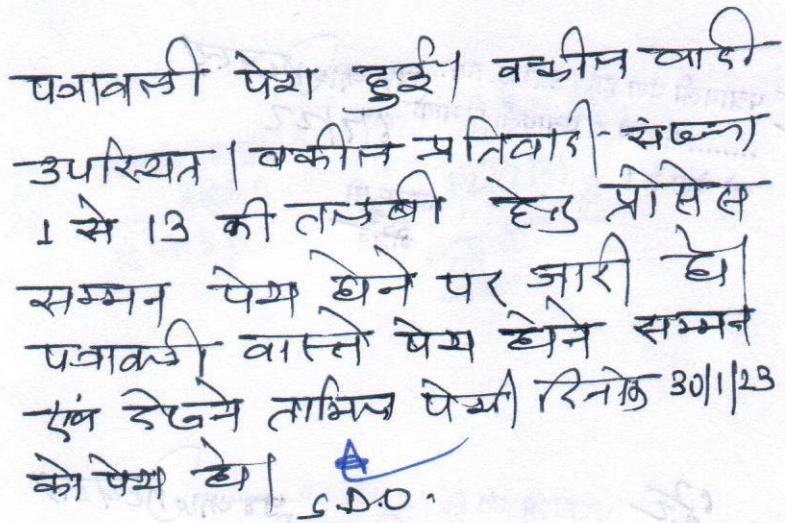 पत्रावली पेश हुई। वकील वादी
उपस्थित। वकील प्रतिवादी संख्या
1 से 13 की तलबी हेतु प्रोसेस
सम्मन पेश होने पर जारी हो।
पत्रावली वास्ते पेश होने सम्मन
एवं देखने तामिल पेशी दिनांक 30/1/23
को पेश हो।
S.D.O.